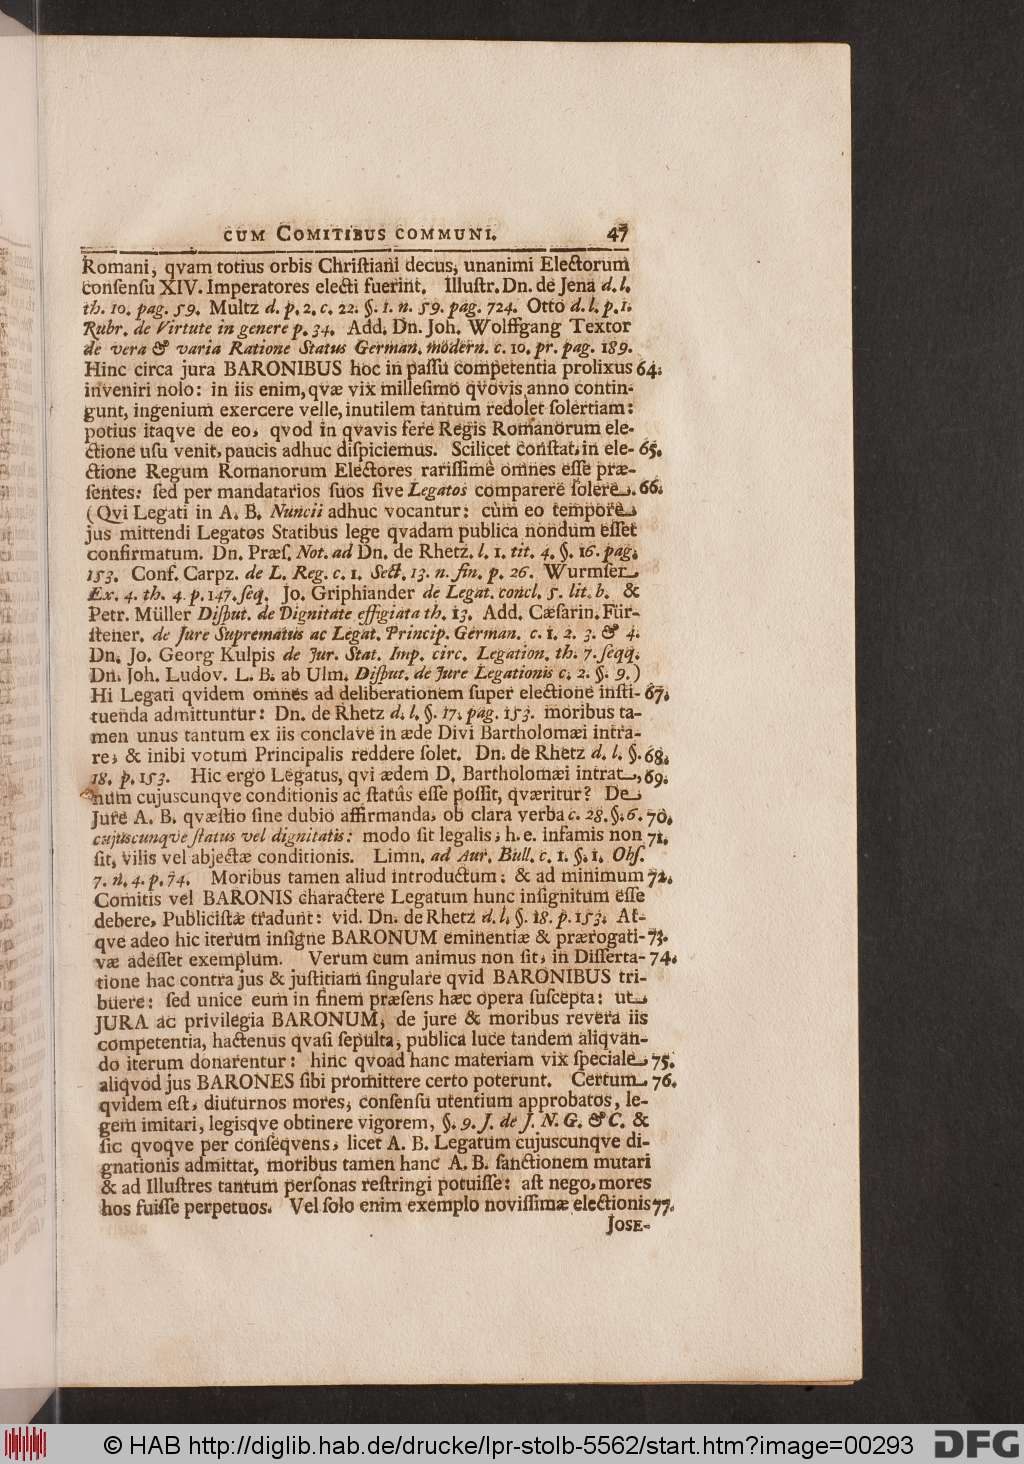 CUM COMITIBUS COMMUNI. 47
Romani, qvam totius orbis Chriſtiani decus, unanimi Electorum
conſenſu XIV. Imperatores electi fuerint. Illuſtr. Dn. de Jena d. l.
th. 10. pag. 59. Multz d. p. 2. c. 22. §. 1. n. 59. pag. 724. Otto d. l. p. 1.
Rubr. de Virtute in genere p. 34. Add. Dn. Joh. Wolffgang Textor
de vera & varia Ratione Status German. modern. c. 10. pr. pag. 189.
Hinc circa jura BARONIBUS hoc in paſſu competentia prolixus 64.
inveniri nolo: in iis enim, qvæ vix milleſimo qvovis anno contin-
gunt, ingenium exercere velle, inutilem tantum redolet ſolertiam:
potius itaqve de eo, qvod in qvavis fere Regis Romanorum ele-
ctione uſu venit, paucis adhuc diſpiciemus. Scilicet conſtat, in ele- 65.
ctione Regum Romanorum Electores rariſſimè omnes eſſe præ-
ſentes: ſed per mandatarios ſuos ſive Legatos comparere ſolere. 66.
(Qvi Legati in A. B. Nuncii adhuc vocantur: cùm eo tempore
jus mittendi Legatos Statibus lege qvadam publica nondum eſſet
confirmatum. Dn. Præſ. Not. ad Dn. de Rhetz. l. 1. tit. 4. §. 16. pag.
153. Conf. Carpz. de L. Reg. c. 1. Sect. 13. n. fin. p. 26. Wurmſer
Ex. 4. th. 4. p. 147. ſeq. Jo. Griphiander de Legat. concl. 5. lit. b. &
Petr. Müller Diſput. de Dignitate effigiata th. 13. Add. Cæſarin. Für-
ſtener. de Jure Suprematus ac Legat. Princip. German. c. 1. 2. 3. & 4.
Dn. Jo. Georg Kulpis de Jur. Stat. Imp. circ. Legation. th. 7. ſeqq.
Dn. Joh. Ludov. L. B. ab Ulm. Diſput. de Jure Legationis c. 2. §. 9.)
Hi Legati qvidem omnes ad deliberationem ſuper electione inſti- 67.
tuenda admittuntur: Dn. de Rhetz d. l. §. 17. pag. 153. moribus ta-
men unus tantum ex iis conclave in æde Divi Bartholomæi intra-
re, & inibi votum Principalis reddere ſolet. Dn. de Rhetz d. l. §. 68.
18. p. 153. Hic ergo Legatus, qvi ædem D. Bartholomæi intrat, 69.
num cujuscunqve conditionis ac ſtatûs eſſe poſſit, qværitur? De
Jure A. B. qvæſtio ſine dubio affirmanda, ob clara verba c. 28. §. 6. 70.
cujuscunqve ſtatus vel dignitatis: modo ſit legalis, h. e. infamis non 71.
ſit, vilis vel abjectæ conditionis. Limn. ad Aur. Bull. c. 1. §. 1. Obſ.
7. n. 4. p. 74. Moribus tamen aliud introductum: & ad minimum 72.
Comitis vel BARONIS charactere Legatum hunc inſignitum eſſe
debere, Publiciſtæ tradunt: vid. Dn. de Rhetz d. l. §. 18. p. 153. At-
qve adeo hic iterum inſigne BARONUM eminentiæ & prærogati- 73.
væ adeſſet exemplum. Verum cum animus non ſit, in Diſſerta- 74.
tione hac contra jus & juſtitiam ſingulare qvid BARONIBUS tri-
buere: ſed unice eum in finem præſens hæc opera ſuſcepta: ut
JURA ac privilegia BARONUM, de jure & moribus revera iis
competentia, hactenus qvaſi ſepulta, publica luce tandem aliqvan-
do iterum donarentur: hinc qvoad hanc materiam vix ſpeciale 75.
aliqvod jus BARONES ſibi promittere certo poterunt. Certum 76.
qvidem eſt, diuturnos mores, conſenſu utentium approbatos, le-
gem imitari, legisqve obtinere vigorem, §. 9. J. de J. N. G. & C. &
ſic qvoqve per conſeqvens, licet A. B. Legatum cujuscunqve di-
gnationis admittat, moribus tamen hanc A. B. ſanctionem mutari
& ad Illuſtres tantum perſonas reſtringi potuiſſe: aſt nego, mores
hos fuiſſe perpetuos. Vel ſolo enim exemplo noviſſimæ electionis 77.
JOSE-
© HAB http://diglib.hab.de/drucke/lpr-stolb-5562/start.htm?image=00293 DFG